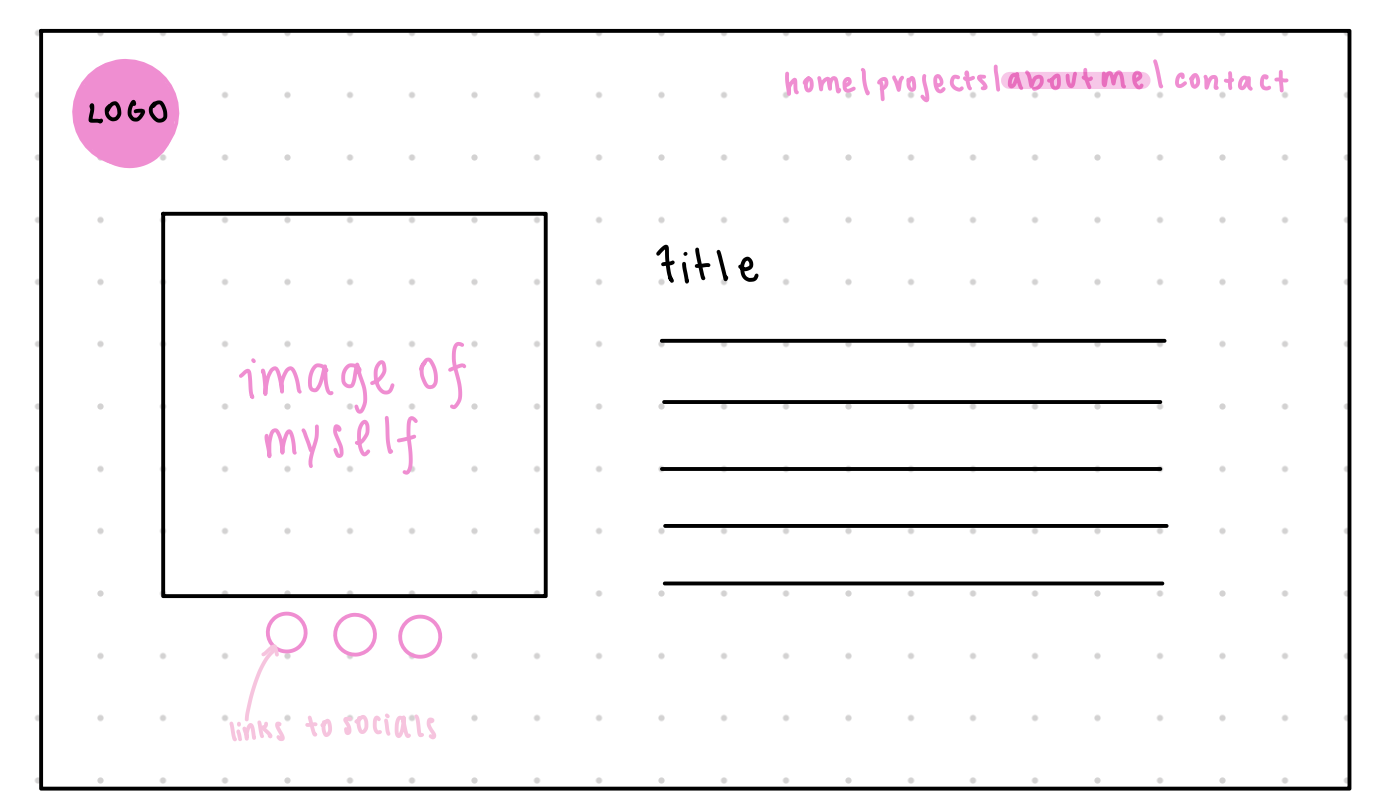 LOGO
home|projects|about me|contact
title
image of
myself
links to socials